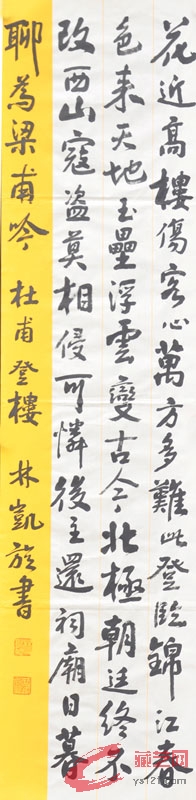 花近高樓傷客心萬方多難此登臨錦江春
色来天地玉壘浮雲變古今北極朝廷終不
改西山寇盗莫相侵可憐後主還祠廟日暮
聊為梁甫吟 杜甫登樓 林凱旋書